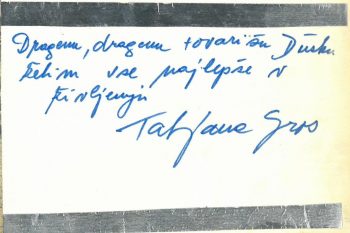 Dragemu, dragemu tovarišu Dušku
želim vse najlepše v
življenju
Tatjana Gros